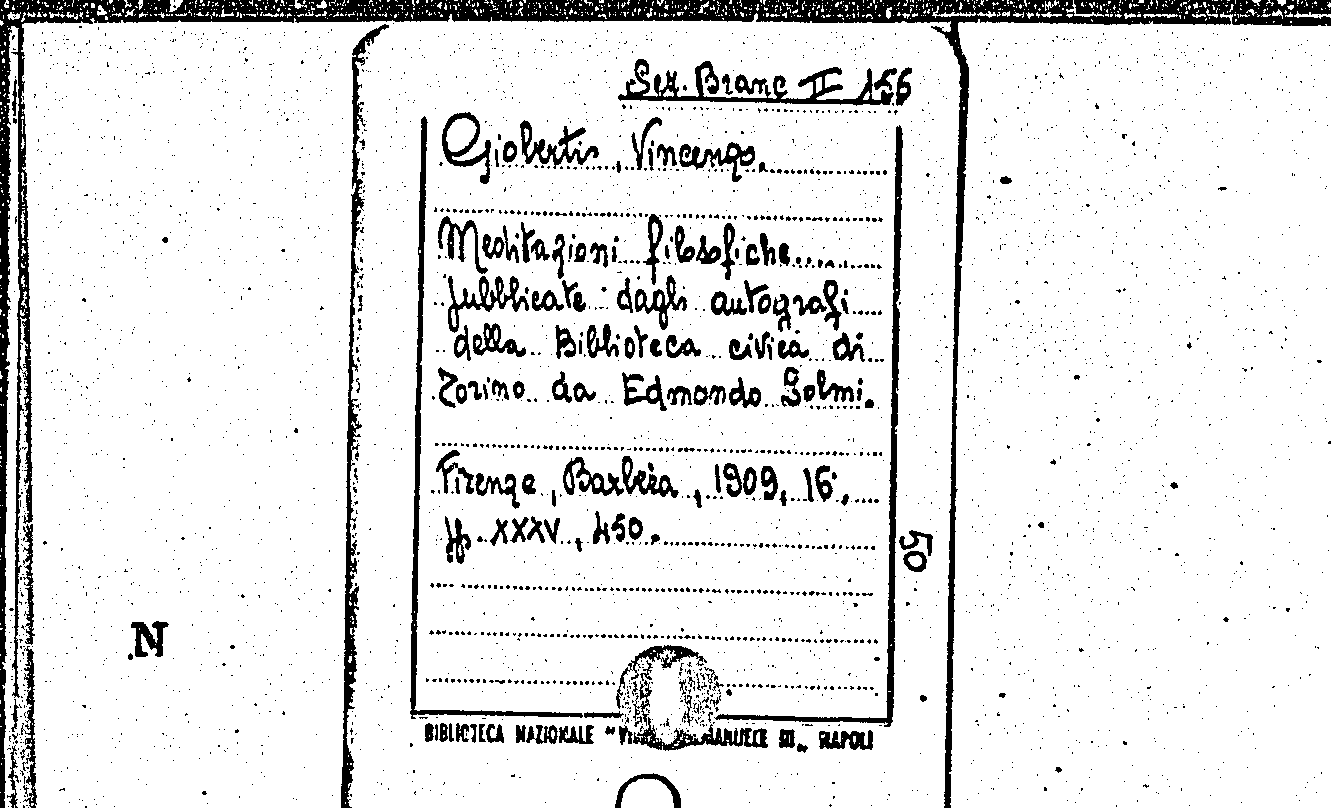 Sez. Branc II 156
Gioberti, Vincenzo.
Meditazioni filosofiche.....
pubblicate dagli autografi
della Biblioteca civica di
Torino da Edmondo Solmi.
Firenze, Barbèra, 1909, 16°.
pp. XXXV, 450.
50
N
BIBLIOTECA NAZIONALE "VITT. EMANUELE III„ NAPOLI